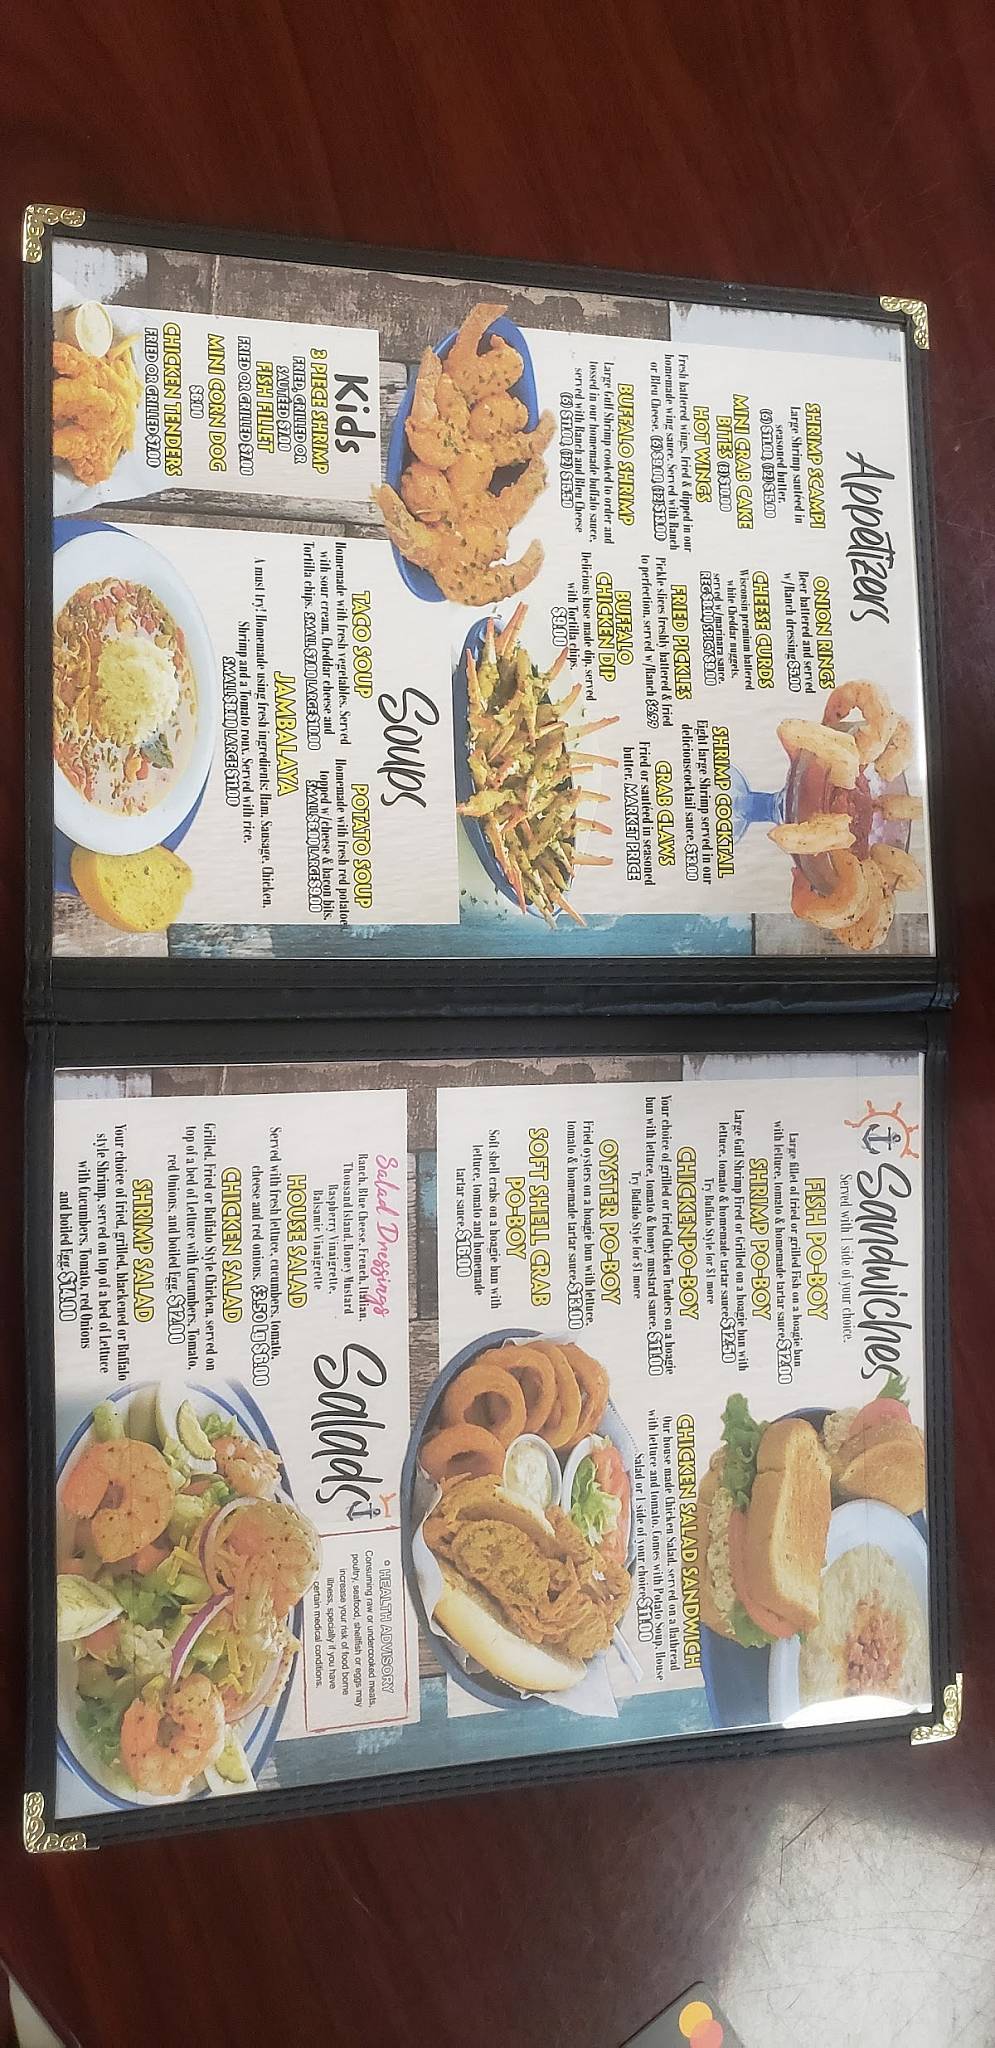 Appetizers
SHRIMP SCAMPI
Large Shrimp sautéed in
seasoned butter.
(6) $11.00, (12) $15.00
MINI CRAB CAKE
BITES (8) $10.00
HOT WINGS
Fresh battered wings, fried & dipped in our
homemade wing sauce. Served with Ranch
or Bleu Cheese. (6) $9.00, (12) $13.00
BUFFALO SHRIMP
Large Gulf Shrimp cooked to order and
tossed in our homemade buffalo sauce,
served with Ranch and Bleu Cheese
(6) $11.00, (12) $15.50
ONION RINGS
Beer battered and served
w/Ranch dressing $5.00
CHEESE CURDS
Wisconsin premium battered
white Cheddar nuggets.
served w/marinara sauce.
REG $8.00 SPICY $9.00
FRIED PICKLES
Pickle slices freshly battered & fried
to perfection, served w/Ranch $6.99
BUFFALO
CHICKEN DIP
Delicious house made dip, served
with Tortilla chips.
$9.00
SHRIMP COCKTAIL
Eight large Shrimp served in our
delicious cocktail sauce. $13.00
CRAB CLAWS
Fried or sautéed in seasoned
butter. MARKET PRICE
Kids
3 PIECE SHRIMP
FRIED, GRILLED OR
SAUTÉED $7.00
FISH FILLET
FRIED OR GRILLED $7.00
MINI CORN DOG
$6.00
CHICKEN TENDERS
FRIED OR GRILLED $7.00
Soups
TACO SOUP
Homemade with fresh vegetables. Served
with sour cream, Cheddar cheese and
Tortilla chips. SMALL $7.00 LARGE $10.00
POTATO SOUP
Homemade with fresh red potatoe
topped w/cheese & bacon bits.
SMALL $6.00 LARGE $9.00
JAMBALAYA
A must try! Homemade using fresh ingredients: Ham, Sausage, Chicken,
Shrimp and a Tomato roux. Served with rice.
SMALL $8.00 LARGE $11.00
Sandwiches
Served with 1 side of your choice.
FISH PO-BOY
Large fillet of fried or grilled Fish on a hoagie bun
with lettuce, tomato & homemade tartar sauce $12.00
SHRIMP PO-BOY
Large Gulf Shrimp Fried or Grilled on a hoagie bun with
lettuce, tomato & homemade tartar sauce $12.50
Try Buffalo Style for $1 more
CHICKEN PO-BOY
Your choice of grilled or fried Chicken Tenders on a hoagie
bun with lettuce, tomato & honey mustard sauce. $11.00
Try Buffalo Style for $1 more
OYSTER PO-BOY
Fried oysters on a hoagie bun with lettuce,
tomato & homemade tartar sauce. $13.00
SOFT SHELL CRAB
PO-BOY
Soft shell crabs on a hoagie bun with
lettuce, tomato and homemade
tartar sauce. $16.00
CHICKEN SALAD SANDWICH
Our house made Chicken Salad, served on a flatbread
with lettuce and tomato. Comes with Potato Soup, House
Salad or 1 side of your choice $11.00
Salad Dressings
Ranch, Blue Cheese, French, Italian,
Thousand Island, Honey Mustard
Raspberry Vinaigrette,
Balsamic Vinaigrette
Salads
HOUSE SALAD
Served with fresh lettuce, cucumbers, tomato,
cheese and red onions. $3.50 Lg $6.00
CHICKEN SALAD
Grilled, Fried or Buffalo Style Chicken, served on
top of a bed of Lettuce with Cucumbers, Tomato,
red Onions, and boiled Egg. $12.00
SHRIMP SALAD
Your choice of fried, grilled, blackened or Buffalo
style Shrimp, served on top of a bed of Lettuce
with Cucumbers, Tomato, red Onions
and boiled Egg. $14.00
HEALTH ADVISORY
Consuming raw or undercooked meats,
poultry, seafood, shellfish or eggs may
increase your risk of food borne
illness, specially if you have
certain medical conditions.